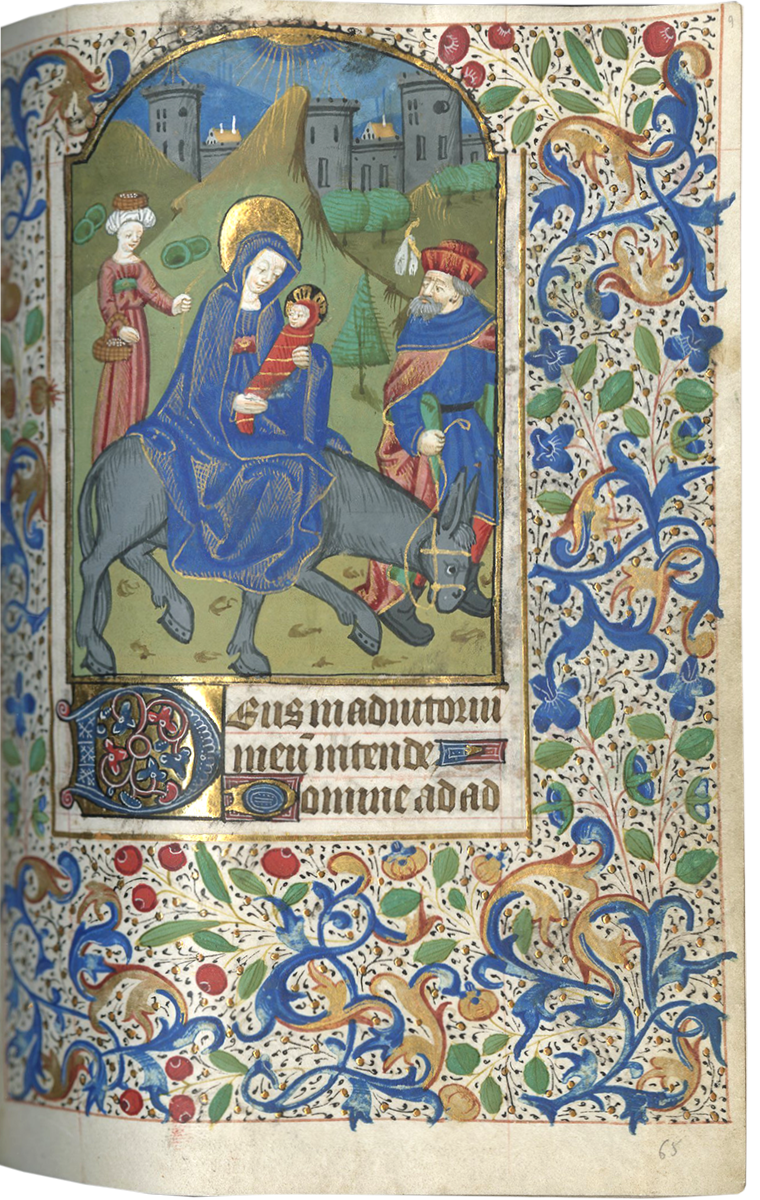 Deus in adiutoriu
meū intende
Domine ad ad
65